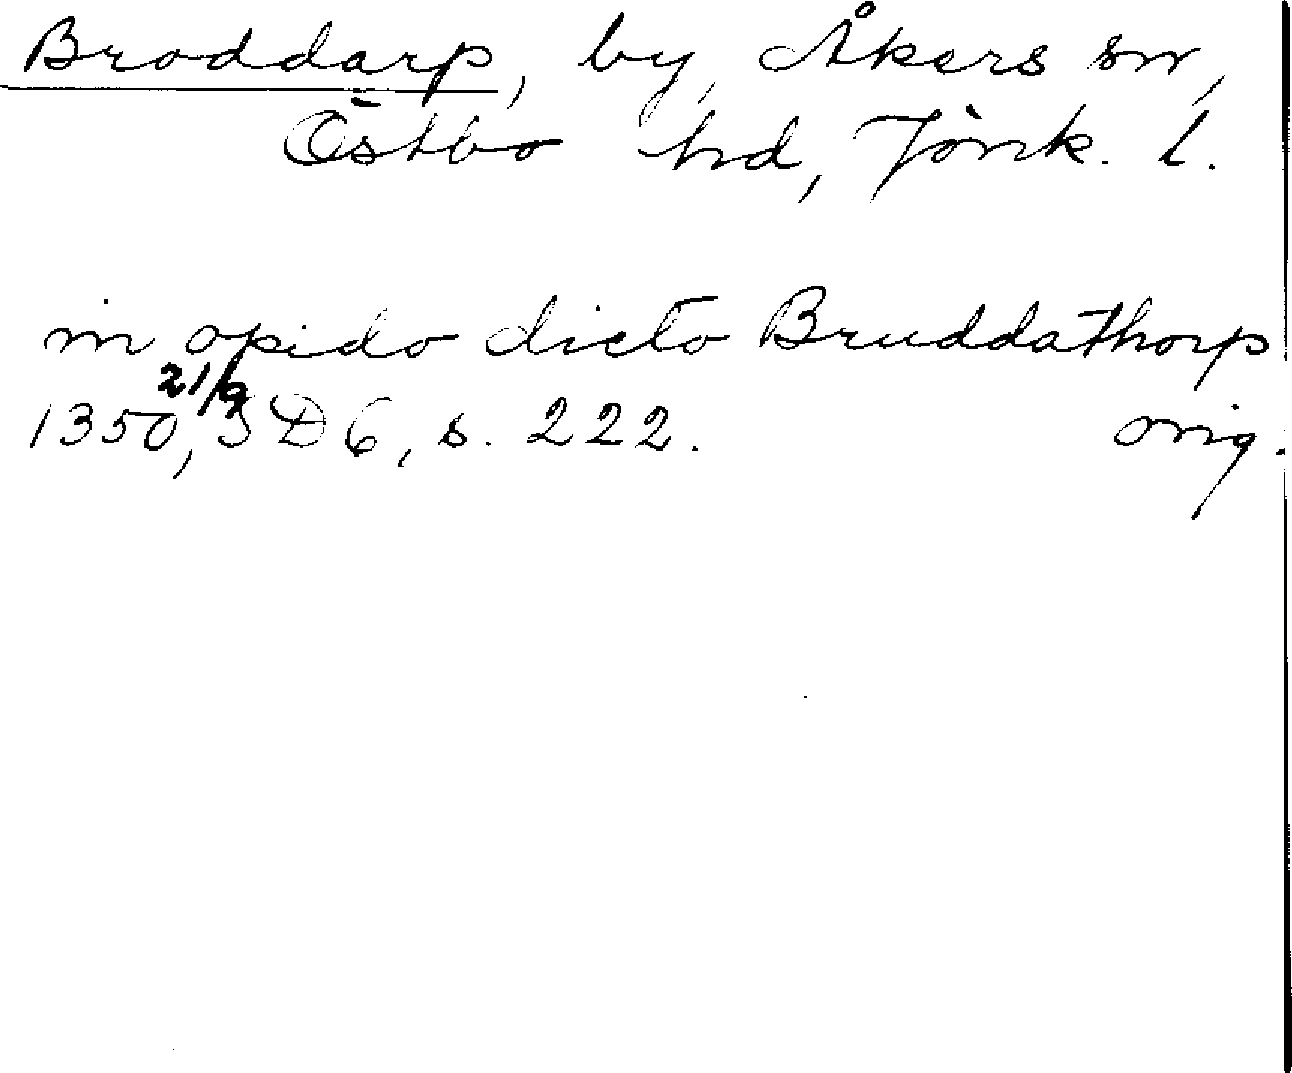 Broddarp, by, Åkers sn,
Östbo hd, Jönk. l.
in opido dicto Bruddathorp
1350 21/9, SD 6, s. 222. orig.